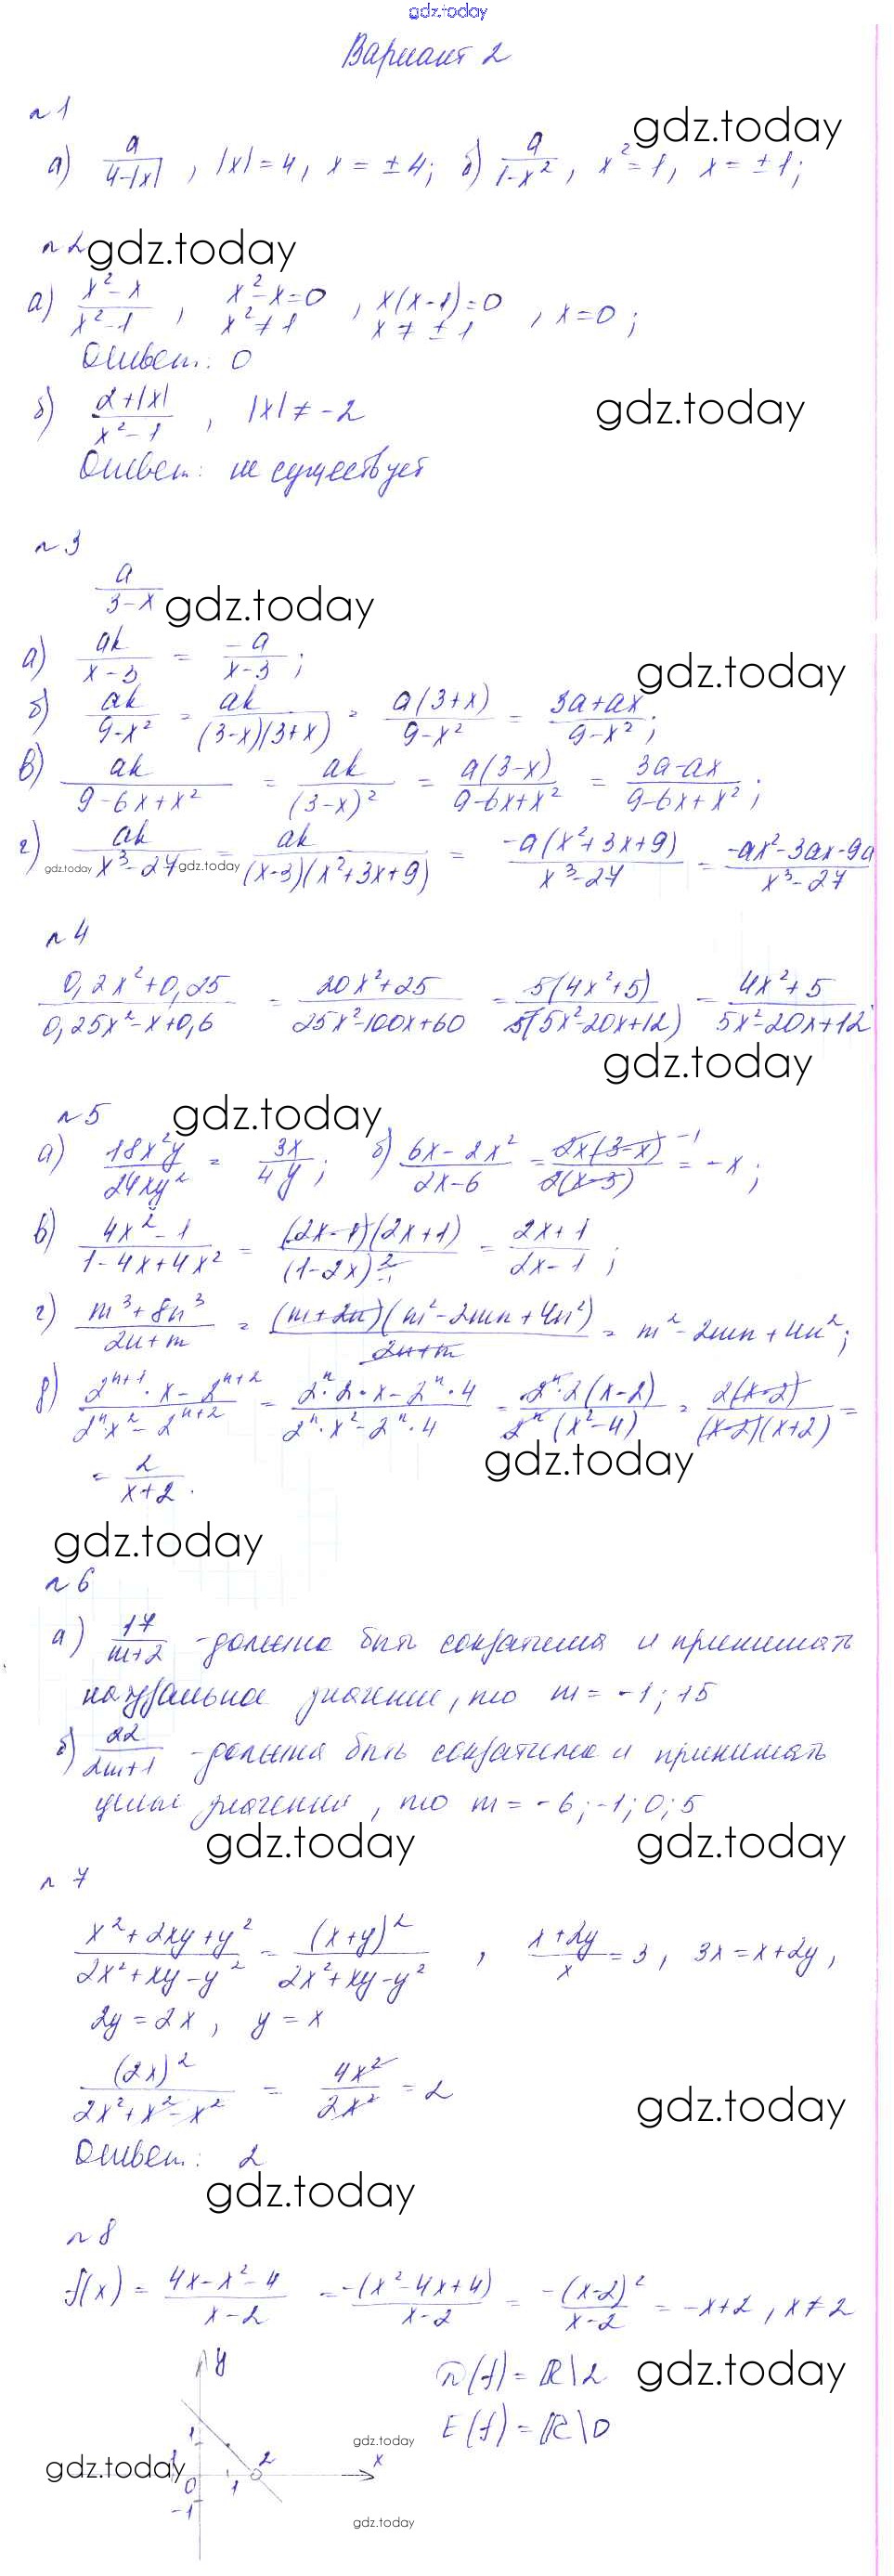 gdz.today
Вариант 2
n 1
gdz.today
а) a/(4-|x|), |x| = 4, x = ± 4; б) a/(1-x²), x² = 1, x = ± 1;
n 2 gdz.today
а) (x²-x)/(x²-1), x²-x=0, x²≠1, x(x-1)=0, x ≠ ± 1, x=0;
Ответ: 0
б) (2+|x|)/(x²-1), |x| ≠ -2 gdz.today
Ответ: не существует
n 3
a/(3-x) gdz.today
а) ak/(x-3) = -a/(x-3);
gdz.today
б) ak/(9-x²) = ak/((3-x)(3+x)) = a(3+x)/(9-x²) = (3a+ax)/(9-x²);
в) ak/(9-6x+x²) = ak/(3-x)² = a(3-x)/(9-6x+x²) = (3a-ax)/(9-6x+x²);
г) ak/(x³-27) = ak/((x-3)(x²+3x+9)) = -a(x²+3x+9)/(x³-27) = (-ax²-3ax-9a)/(x³-27)
gdz.today gdz.today
n 4
(0,2x²+0,25)/(0,25x²-x+0,6) = (20x²+25)/(25x²-100x+60) = 5(4x²+5)/(5(5x²-20x+12)) = (4x²+5)/(5x²-20x+12)
gdz.today
n 5 gdz.today
а) 18x²y/24xy² = 3x/4y; б) (6x-2x²)/(2x-6) = 2x(3-x)/(2(x-3)) ⁻¹ = -x;
в) (4x²-1)/(1-4x+4x²) = (2x-1)(2x+1)/(1-2x)² = (2x+1)/(2x-1);
г) (m³+8n³)/(2n+m) = (m+2n)(m²-2mn+4n²)/(2n+m) = m²-2mn+4n²;
д) (2ⁿ⁺¹·x-2ⁿ⁺²)/(2ⁿx²-2ⁿ⁺²) = (2ⁿ·2·x-2ⁿ·4)/(2ⁿ·x²-2ⁿ·4) = 2ⁿ·2(x-2)/(2ⁿ(x²-4)) = 2(x-2)/((x-2)(x+2)) =
gdz.today
= 2/(x+2).
gdz.today
n 6
а) 17/(m+2) - должна быть сократима и принимать
натуральное значение, то m = -1; 15
б) 22/(2m+1) - должна быть сократима и принимать
целые значения, то m = -6; -1; 0; 5
gdz.today gdz.today
n 7
(x²+2xy+y²)/(2x²+xy-y²) = (x+y)²/(2x²+xy-y²), (x+2y)/x = 3, 3x = x+2y,
2y = 2x, y = x
(2x)²/(2x²+x²-x²) = 4x²/2x² = 2
gdz.today
Ответ: 2
gdz.today
n 8
f(x) = (4x-x²-4)/(x-2) = -(x²-4x+4)/(x-2) = -(x-2)²/(x-2) = -x+2, x≠2
y
D(f) = ℝ\2 gdz.today
E(f) = ℝ\0
1
gdz.today
gdz.today
2
x
0
1
-1
gdz.today